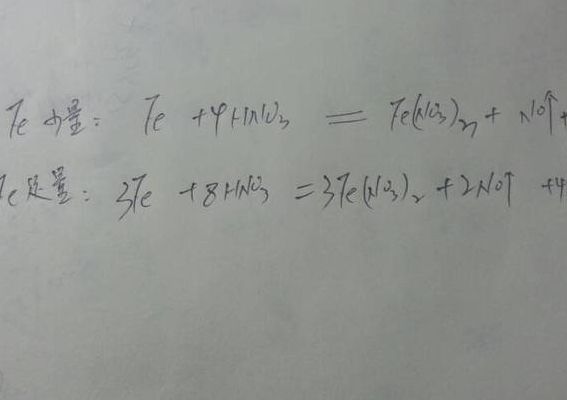 Fe 少量： Fe + 4HNO₃ = Fe(NO₃)₃ + NO↑ +
Fe 足量： 3Fe + 8HNO₃ = 3Fe(NO₃)₂ + 2NO↑ + 4